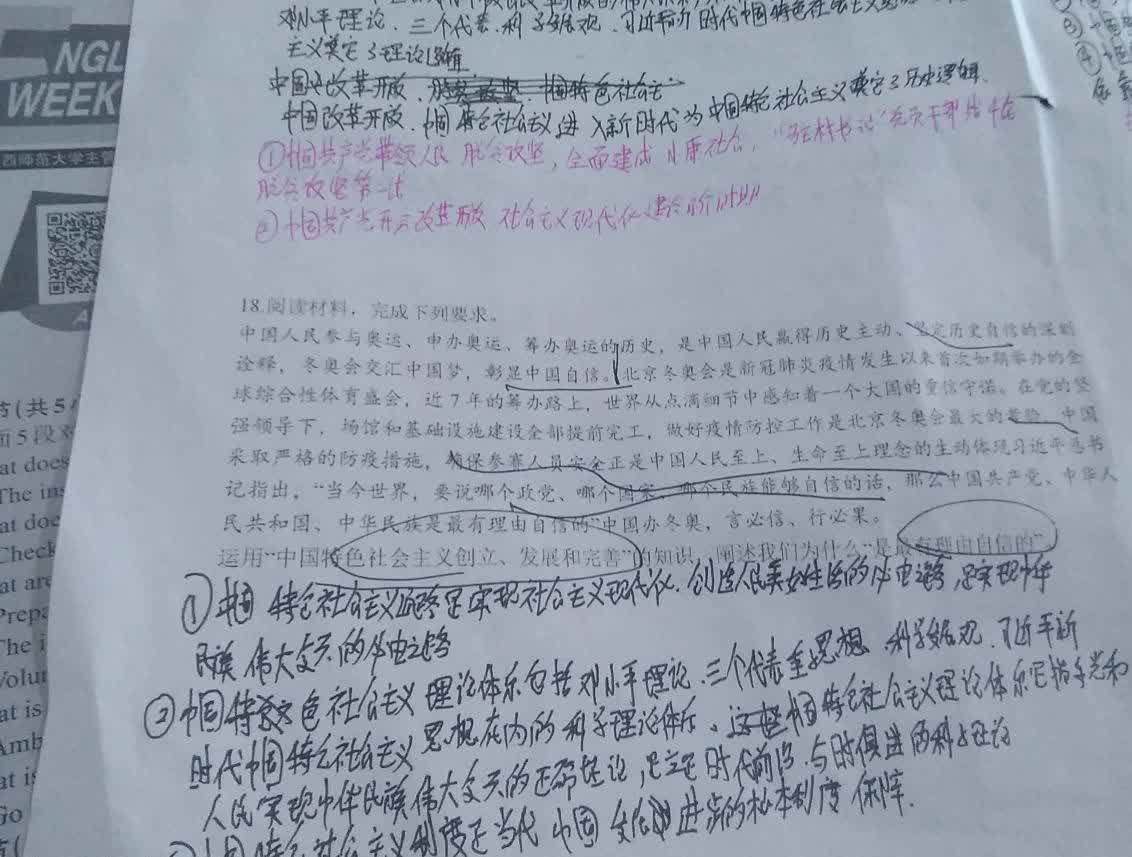 邓小平理论、三个代表、科学发展观、习近平新时代中国特色社会主义
主义奠定了理论逻辑
中国改革开放、中国特色社会主义进入新时代为中国特色社会主义奠定了历史逻辑
①中国共产党带领人民脱贫攻坚,全面建成小康社会,"驻村书记"党员干部
脱贫攻坚第一线
②中国共产党开启改革开放社会主义现代化建设新时期
NGL
WEEK
西师范大学主管
18.阅读材料,完成下列要求。
中国人民参与奥运、申办奥运、筹办奥运的历史,是中国人民赢得历史主动、坚定历史自信的深刻
诠释,冬奥会交汇中国梦,彰显中国自信。北京冬奥会是新冠肺炎疫情发生以来首次如期举办的全
球综合性体育盛会,近7年的筹办路上,世界从点滴细节中感知着一个大国的重信守诺。在党的坚
强领导下,场馆和基础设施建设全部提前完工,做好疫情防控工作是北京冬奥会最大的考验,中国
采取严格的防疫措施,确保参赛人员安全正是中国人民至上、生命至上理念的生动体现习近平总书
记指出,"当今世界,要说哪个政党、哪个国家、哪个民族能够自信的话,那么中国共产党、中华人
民共和国、中华民族是最有理由自信的"中国办冬奥,言必信、行必果。
运用"中国特色社会主义创立、发展和完善"的知识,阐述我们为什么"是最有理由自信的"
①中国特色社会主义道路是实现社会主义现代化、创造人民美好生活的必由之路,是实现中华
民族伟大复兴的必由之路
②中国特色社会主义理论体系包括邓小平理论、三个代表重要思想、科学发展观、习近平新
时代中国特色社会主义思想在内的科学理论体系、中国特色社会主义理论体系是指导党和
人民实现中华民族伟大复兴的正确理论,是立足时代前沿、与时俱进的科学理论
中国特色社会主义制度是当代中国发展进步的根本制度保障.
节(共5小
面5段对
at does
The ins
at doe
Check
at are
Prepa
The i
Volun
at is
Amb
at is
Go